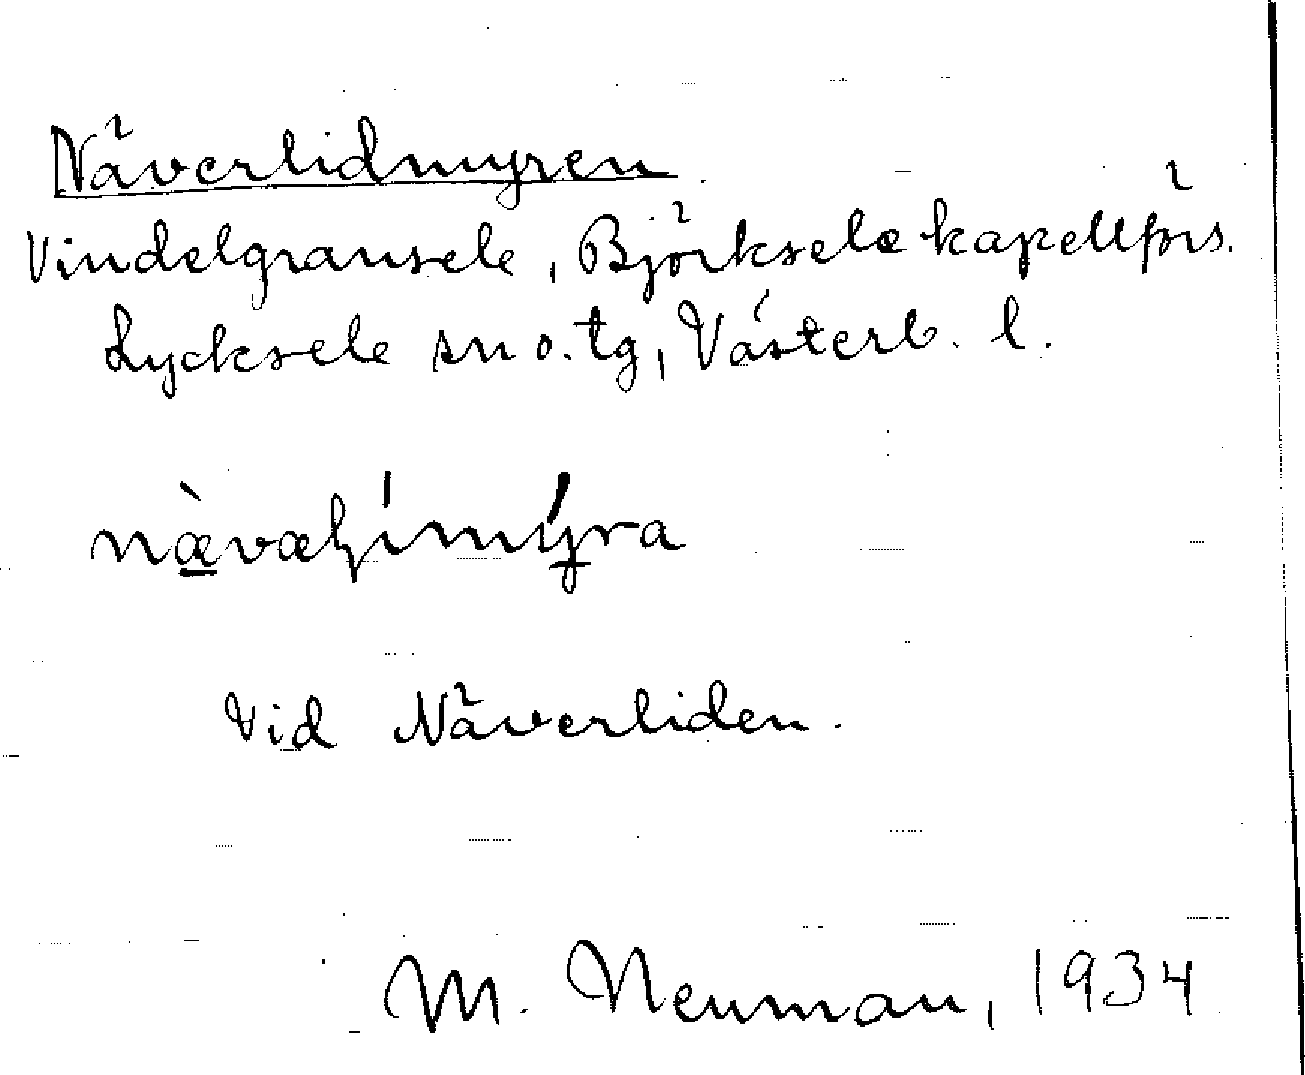 Näverlidmyren
Vindelgransele, Björksele kapellförs.
Lycksele sn o. tg, Västerb. l.
Vid Näverliden.
M. Neuman, 1934